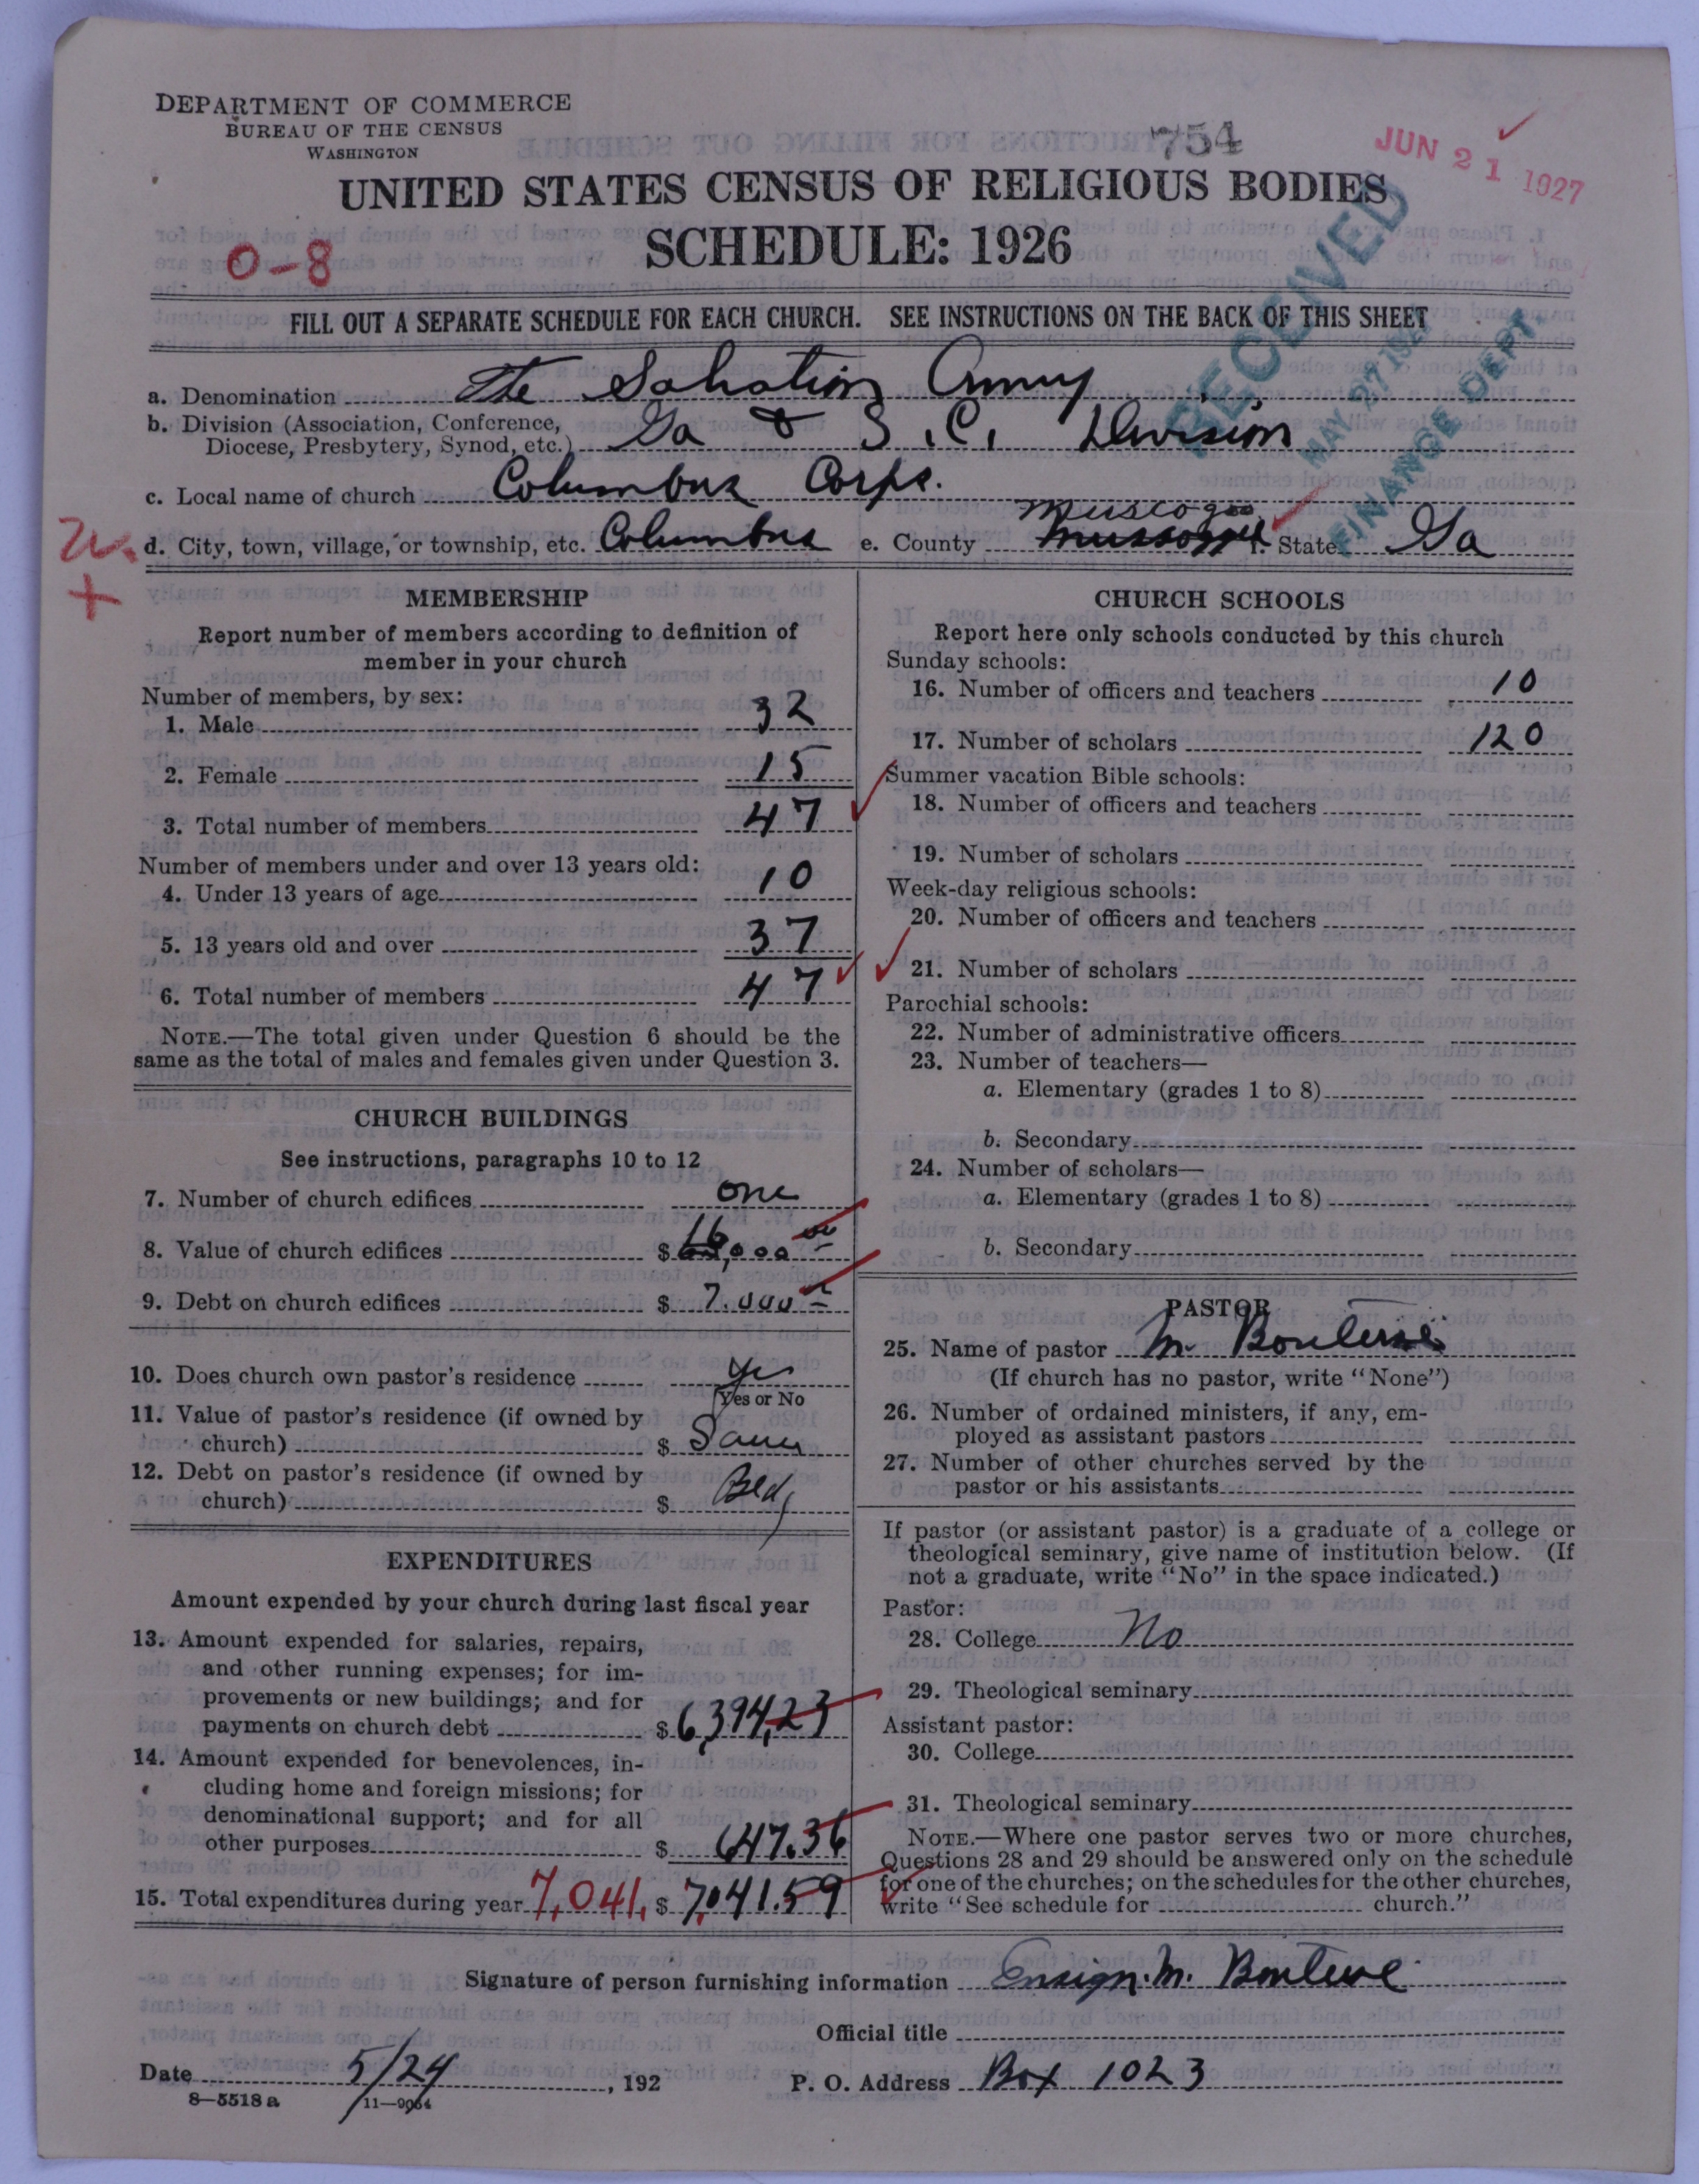 DEPARTMENT OF COMMERCE
BUREAU OF THE CENSUS
WASHINGTON
754
JUN 21 1927
UNITED STATES CENSUS OF RELIGIOUS BODIES
SCHEDULE: 1926
0-8
RECEIVED
MAY 27 1927
FINANCE DEPT.
FILL OUT A SEPARATE SCHEDULE FOR EACH CHURCH. SEE INSTRUCTIONS ON THE BACK OF THIS SHEET
a. Denomination The Salvation Army
b. Division (Association, Conference,
Diocese, Presbytery, Synod, etc.) Ga & S.C. Division
c. Local name of church Columbus Corps.
d. City, town, village, or township, etc. Columbus e. County Muscogee f. State Ga
MEMBERSHIP
Report number of members according to definition of
member in your church
Number of members, by sex:
1. Male 32
2. Female 15
3. Total number of members 47
Number of members under and over 13 years old:
4. Under 13 years of age 10
5. 13 years old and over 37
6. Total number of members 47
NOTE.—The total given under Question 6 should be the
same as the total of males and females given under Question 3.
CHURCH BUILDINGS
See instructions, paragraphs 10 to 12
7. Number of church edifices one
8. Value of church edifices $ 16,000 00
9. Debt on church edifices $ 7.000
10. Does church own pastor's residence Yes
Yes or No
11. Value of pastor's residence (if owned by
church) $ Same
12. Debt on pastor's residence (if owned by
church) $ Bldg
EXPENDITURES
Amount expended by your church during last fiscal year
13. Amount expended for salaries, repairs,
and other running expenses; for im-
provements or new buildings; and for
payments on church debt $ 6,394,23
14. Amount expended for benevolences, in-
cluding home and foreign missions; for
denominational support; and for all
other purposes $ 647.36
15. Total expenditures during year 7,041, $ 7,041.59
CHURCH SCHOOLS
Report here only schools conducted by this church
Sunday schools:
16. Number of officers and teachers 10
17. Number of scholars 120
Summer vacation Bible schools:
18. Number of officers and teachers
19. Number of scholars
Week-day religious schools:
20. Number of officers and teachers
21. Number of scholars
Parochial schools:
22. Number of administrative officers
23. Number of teachers—
a. Elementary (grades 1 to 8)
b. Secondary
24. Number of scholars—
a. Elementary (grades 1 to 8)
b. Secondary
PASTOR
25. Name of pastor M. Bouterse
(If church has no pastor, write "None")
26. Number of ordained ministers, if any, em-
ployed as assistant pastors
27. Number of other churches served by the
pastor or his assistants
If pastor (or assistant pastor) is a graduate of a college or
theological seminary, give name of institution below. (If
not a graduate, write "No" in the space indicated.)
Pastor:
28. College No
29. Theological seminary
Assistant pastor:
30. College
31. Theological seminary
NOTE.—Where one pastor serves two or more churches,
Questions 28 and 29 should be answered only on the schedule
for one of the churches; on the schedules for the other churches,
write "See schedule for church."
Signature of person furnishing information Ensign. M. Bouterse
Official title
Date 5/24, 192 P. O. Address Box 1023
8-5518 a 11-9064